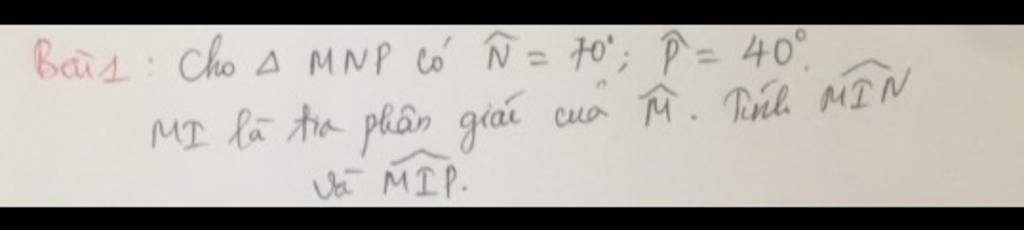 Bài 1: Cho △ MNP có N̂ = 70°; P̂ = 40°.
MI là tia phân giác của M̂. Tính M͡IN
và M͡IP.